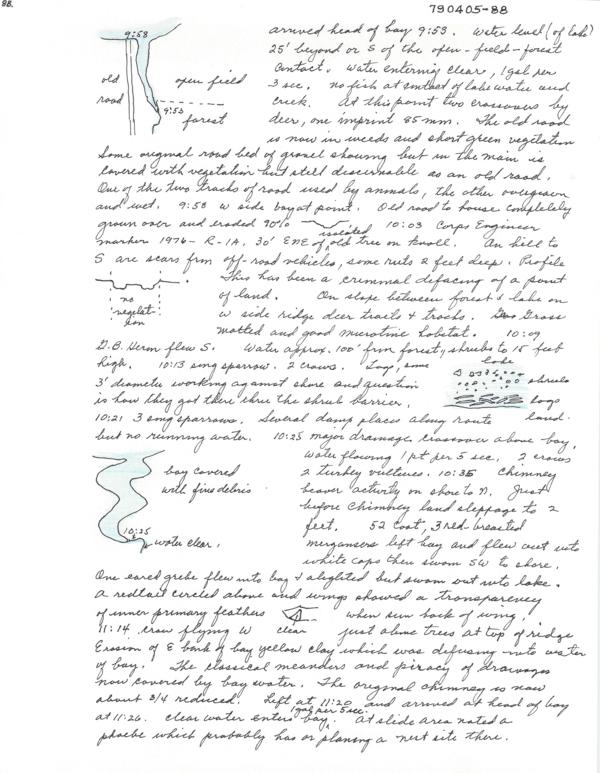 88.
790405-88
arrived head of bay 9:53. Water level (of lake)
9:58
25' beyond or S of the open-field-forest
contact. Water entering clear, 1 gal per
old road
open field
3 sec. no fish at contact of lake water and
creek. At this point two crossovers by
9:53
forest
deer, one imprint 85 mm. The old road
is now in weeds and short green vegetation
Some original road bed of gravel showing but in the main is
covered with vegetation but still discernable as an old road.
One of the two tracks of road used by animals, the other overgrown
and wet. 9:58 W side bay at point. Old road to house completely
grown over and eroded 90% 10:03 Corps Engineer
isolated
marker 1976-R-1A. 30' ENE of old tree on knoll. On hill to
S are scars frm off-road vehicles, some ruts 2 feet deep. Profile
no vegetation
This has been a criminal defacing of a point
of land. On slope between forest & lake on
W side ridge deer trails & tracks. Grass
matted and good microtine habitat. 10:09
G.B. Heron flew S. Water approx. 100' frm forest, shrubs to 15 feet
high. 10:13 song sparrow. 2 crows. Logs, some
lake
3' diameter working against shore and question
shrubs
is how they got there thru the shrub barrier.
logs
10:21 3 song sparrows. Several damp places along route
land.
but no running water. 10:25 major drainage crossover above bay,
water flowing 1 pt per 5 sec. 2 crows
bay covered
with fine debris
2 turkey vultures. 10:35 Chimney
beaver activity on shore to N. Just
before Chimney land slippage to 2
10:25
feet. 52 Coot, 3 red breasted
water clear.
mergansers left bay and flew out into
white caps then swam SW to shore.
One eared grebe flew into bay & alighted but swam out into lake.
A redtail circled above and wings showed a transparency
of inner primary feathers when sun back of wing.
clear
11:14 crow flying W just above trees at top of ridge
Erosion of E bank of bay yellow clay which was defusing into water
of bay. The classical meanders and piracy of drainages
now covered by bay water. The original chimney is now
about 3/4 reduced. Left at 11:20 and arrived at head of bay
1 gal per 5 sec.
at 11:26. Clear water enters bay. At slide area noted a
phoebe which probably has or planing a nest site there.